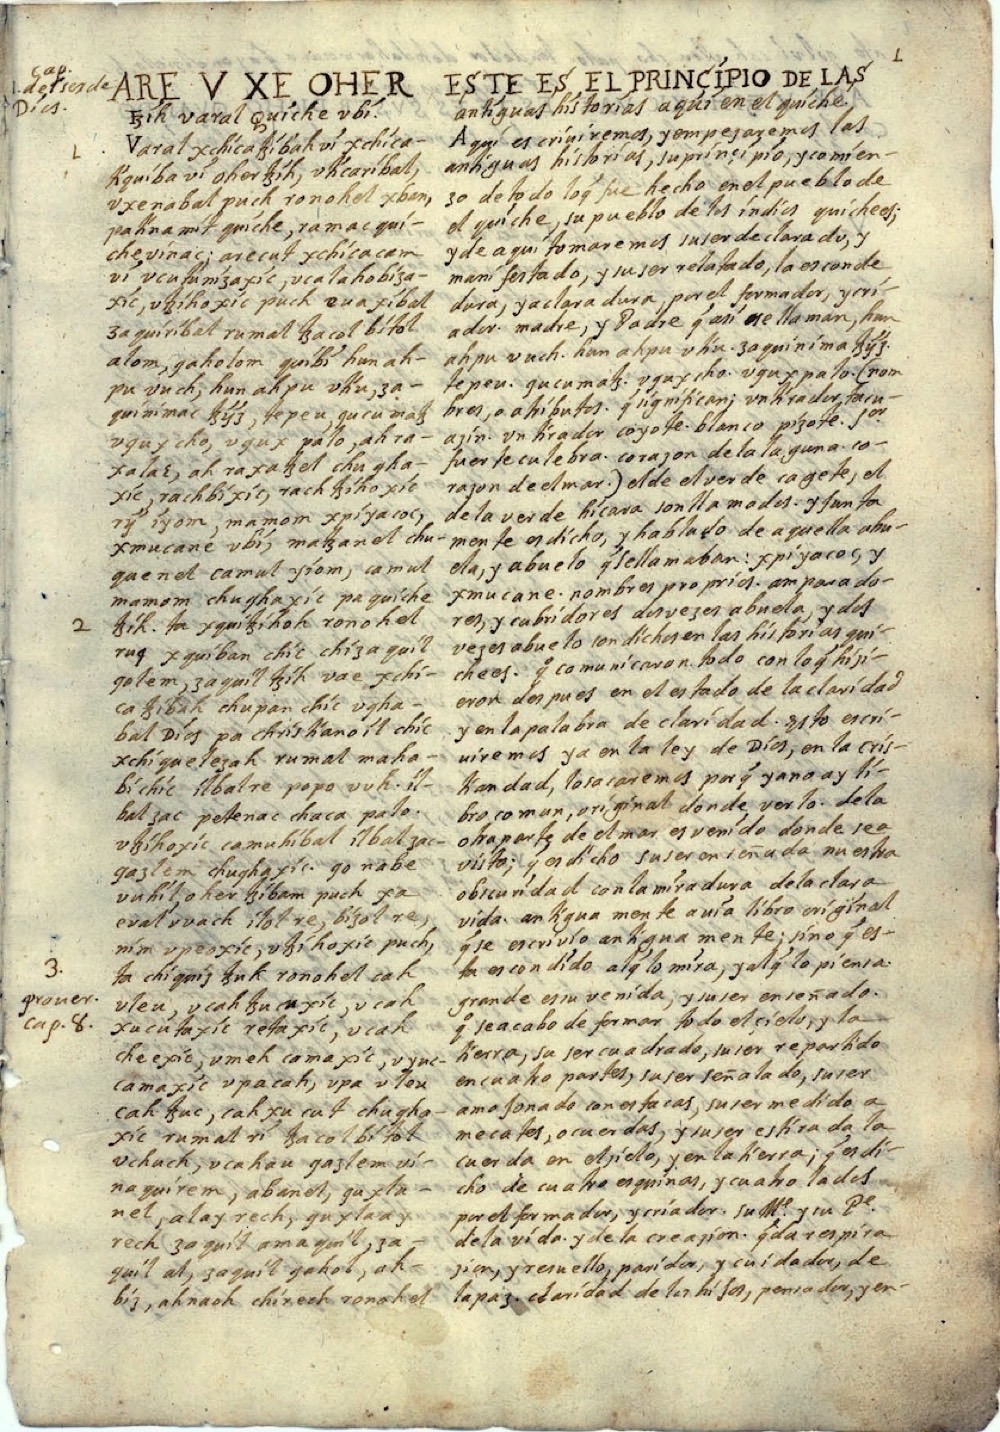 1
cap.
1. del ser de
Dios.
ARE V XE OHER
ꜩih varal quiche vbi.
1
Varal xchicaꜩibah vi xchica-
tiquiba vi oher ꜩih, vticaribal,
vxenabal puch ronohel xban,
pa tinamit quiche, ramac qui-
che vinac; arecut xchicacam
vi vcutunizaxic, vcalahobiza-
xic, vꜩihoxic puch euaxibal
zaquiribal rumal ꜩacol bitol
alom, qaholom quibi hun ah-
pu vuch, hun ahpu vtiu, za-
quinimac ꜩyꜩ, tepeu, qucumaꜩ
vqux cho, vqux palo, ah ra-
xalac, ah raxaꜩel chugha-
xic, rachbixic, rachꜩihoxic
rij iyom, mamom xpiyacoc,
xmucane vbi, maꜩanel chu-
quenel camul yiom, camul
mamom chughaxic pa quiche
2
ꜩih. ta xquiꜩihoh ronohel
ruq xquiban chic chi zaquil
qolem, zaquil ꜩih vae xchi-
caꜩibah chupan chic vgha-
bal Dios pa christianoil chic
xchiquelezah rumal maha-
bi chic ilbal re popo vuh. il-
bal zac petenac chaca palo.
vꜩihoxic camuhibal ilbal zac-
qazlem chughaxic. qo nabe
vuhil, oher ꜩibam puch xa
eval vvach ilol re, bizol re,
nim vpeoxic, vꜩihoxic puch,
3.
prouer.
cap. 8.
ta chiquiz ꜩuk ronohel cah
vleu, vcah ꜩucuxic, vcah
xucutaxic retaxic, vcah
cheexic, vmeh camaxic, vyuc-
camaxic vpa cah, vpa vleu
cah ꜩuc, cah xucut chugha-
xic rumal ri ꜩacol bitol
vchuch, vcahau qazlem vi-
naquirem, abanel, quxla-
nel, alay rech, quxlaay
rech zaquil amaquil, za-
quil al, zaquil qahol, ah-
biz, ahnaoh chirech ronohel
ESTE ES EL PRINCIPIO DE LAS
antiguas historias aqui en el quiche.
Aqui escriuiremos, y empezaremos las
antiguas historias, su principio, y comien-
zo de todo lo q̃ fue hecho en el pueblo de
el quiche, su pueblo de los indios quichees;
y de aqui tomaremos su ser declarado, y
manifestado, y su ser relatado, la esconde
dura, y aclaradura, por el formador, y cri-
ador. madre, y Padre q̃ asi se llaman, hun
ahpu vuch. hun ahpu vtiu. zaquinima ꜩyꜩ.
tepeu. qucumaꜩ. vqux cho. vqux palo. (nom
bres, o atributos. q̃ significan; vn tirador, tacu-
azin. vn tirador coyote. blanco pizote. Sor
fuerte culebra. corazon de la laguna. co-
razon de el mar.) el de el verde cagete, el
de la verde hicara son llamados. y junta
mente es dicho, y hablado de aquella abu-
ela, y abuelo q̃ se llamaban: xpiyacoc, y
xmucane. nombres proprios. amparado-
res, y cubridores dos vezes abuela, y dos
vezes abuelo son dichos en las historias qui-
chees. q̃ comunicaron todo con lo q̃ hizi-
eron despues en el estado de la claridad
y en la palabra de claridad. Esto escri-
uiremos ya en la ley de Dios, en la cris-
tiandad, lo sacaremos porq̃ ya no ay li-
bro comun, original donde verlo. de la
otra parte de el mar es venido donde sea
visto; q̃ es dicho su ser enseñada nuestra
obscuridad con la miradura de la clara
vida. antiguamente auia libro original
q̃ se escrivio antiguamente; sino q̃ es-
ta escondido al q̃ lo mira, y al q̃ lo piensa.
grande es su venida, y su ser enseñado.
q̃ se acabo de formar todo el cielo, y la
tierra, su ser cuadrado, su ser repartido
en cuatro partes, su ser señalado, su ser
amojonado con estacas, su ser medido a
mecates, o cuerdas, y su ser estirada la
cuerda en el cielo, y en la tierra; q̃ es di-
cho de cuatro esquinas, y cuatro lados
por el formador, y criador. su Me. y su Pe.
de la vida. y de la creazion. q̃ da respira
zion, y resuello, paridor, y cuidador, de
la paz. claridad de los hijos, pensador, y en-